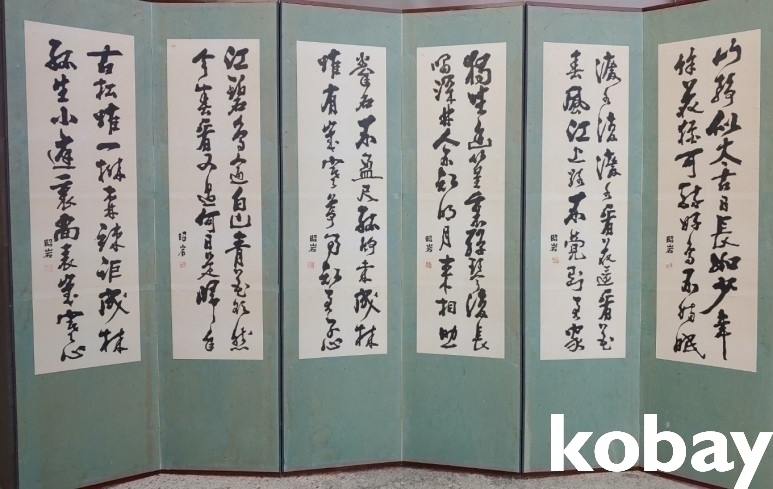 山靜似太古日長如少年
餘花猶可醉好鳥不妨眠
昭岩
渡水復渡水看花還看花
春風江上路不覺到君家
昭岩
獨坐幽篁裏彈琴復長
嘯深林人不知明月來相照
昭岩
拳石不盈尺孤竹未成林
惟有歲寒節乃知君子心
昭岩
江碧鳥逾白山青花欲然
今春看又過何日是歸年
昭岩
古松惟一株森竦詎成林
孤生小庭裏尚表歲寒心
昭岩
kobay